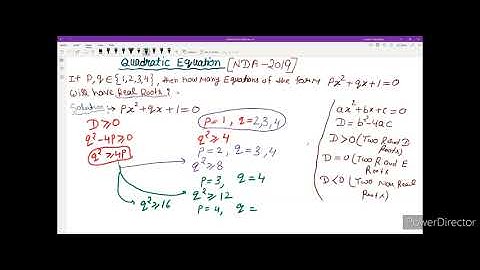 Quadratic Equation [NDA-2019]
If P,q ∈ {1,2,3,4}, then how many Equations of the form Px²+qx+1=0
will have Real Roots?
Solution:→ Px²+qx+1=0
D≥0
q²-4P≥0
q²≥4P
q²≥16
P=1, q=2,3,4
q²≥4
P=2, q=3,4
q²≥8
P=3, q=4
q²≥12
P=4, q=
ax²+bx+c=0
D=b²-4ac
D>0 (Two R and D
Roots)
D=0 (Two R and E
Roots
D<0 (Two Non Real
Roots)
PowerDirector